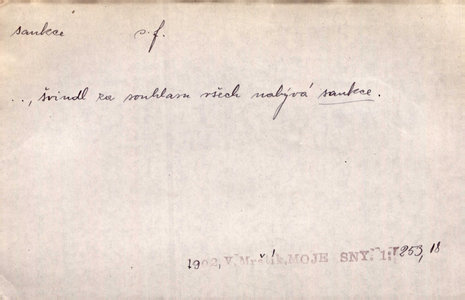 sankcé s.f.
.., švindl za souhlasu všech nabývá sankce.
1902, V. Mrštík, MOJE SNY. 1: 253, 18